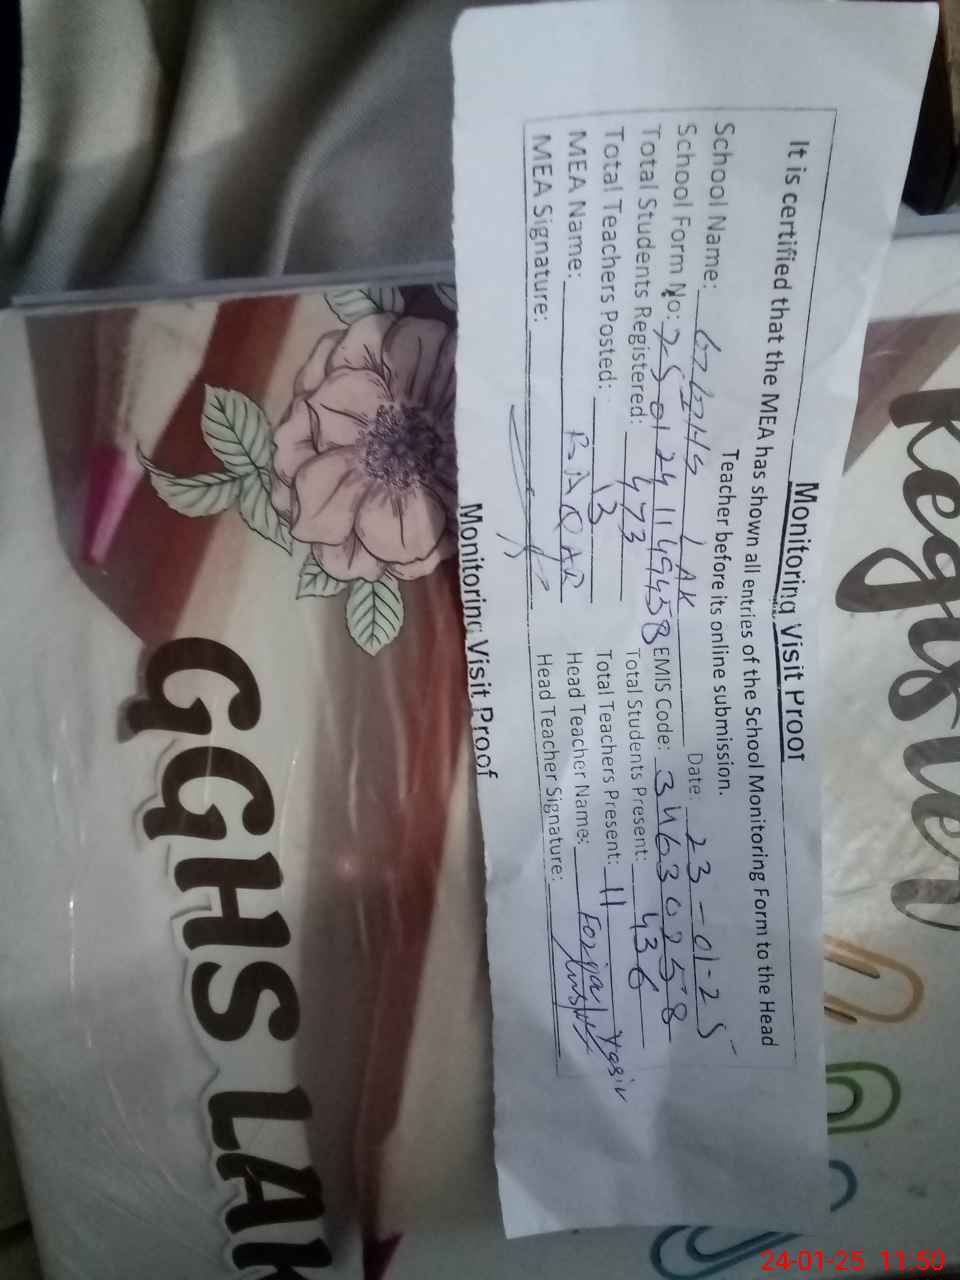 Monitoring Visit Proof
It is certified that the MEA has shown all entries of the School Monitoring Form to the Head
Teacher before its online submission.
School Name: GGHS LAK Date: 23-01-25
School Form No: 7501241149458 EMIS Code: 34630258
Total Students Registered: 473 Total Students Present: 436
Total Teachers Posted: 13 Total Teachers Present: 11
MEA Name: BAQAR Head Teacher Name: Fozia Yasin
MEA Signature: Head Teacher Signature:
Monitoring Visit Proof
Register
GGHS LAK
24-01-25 11:50